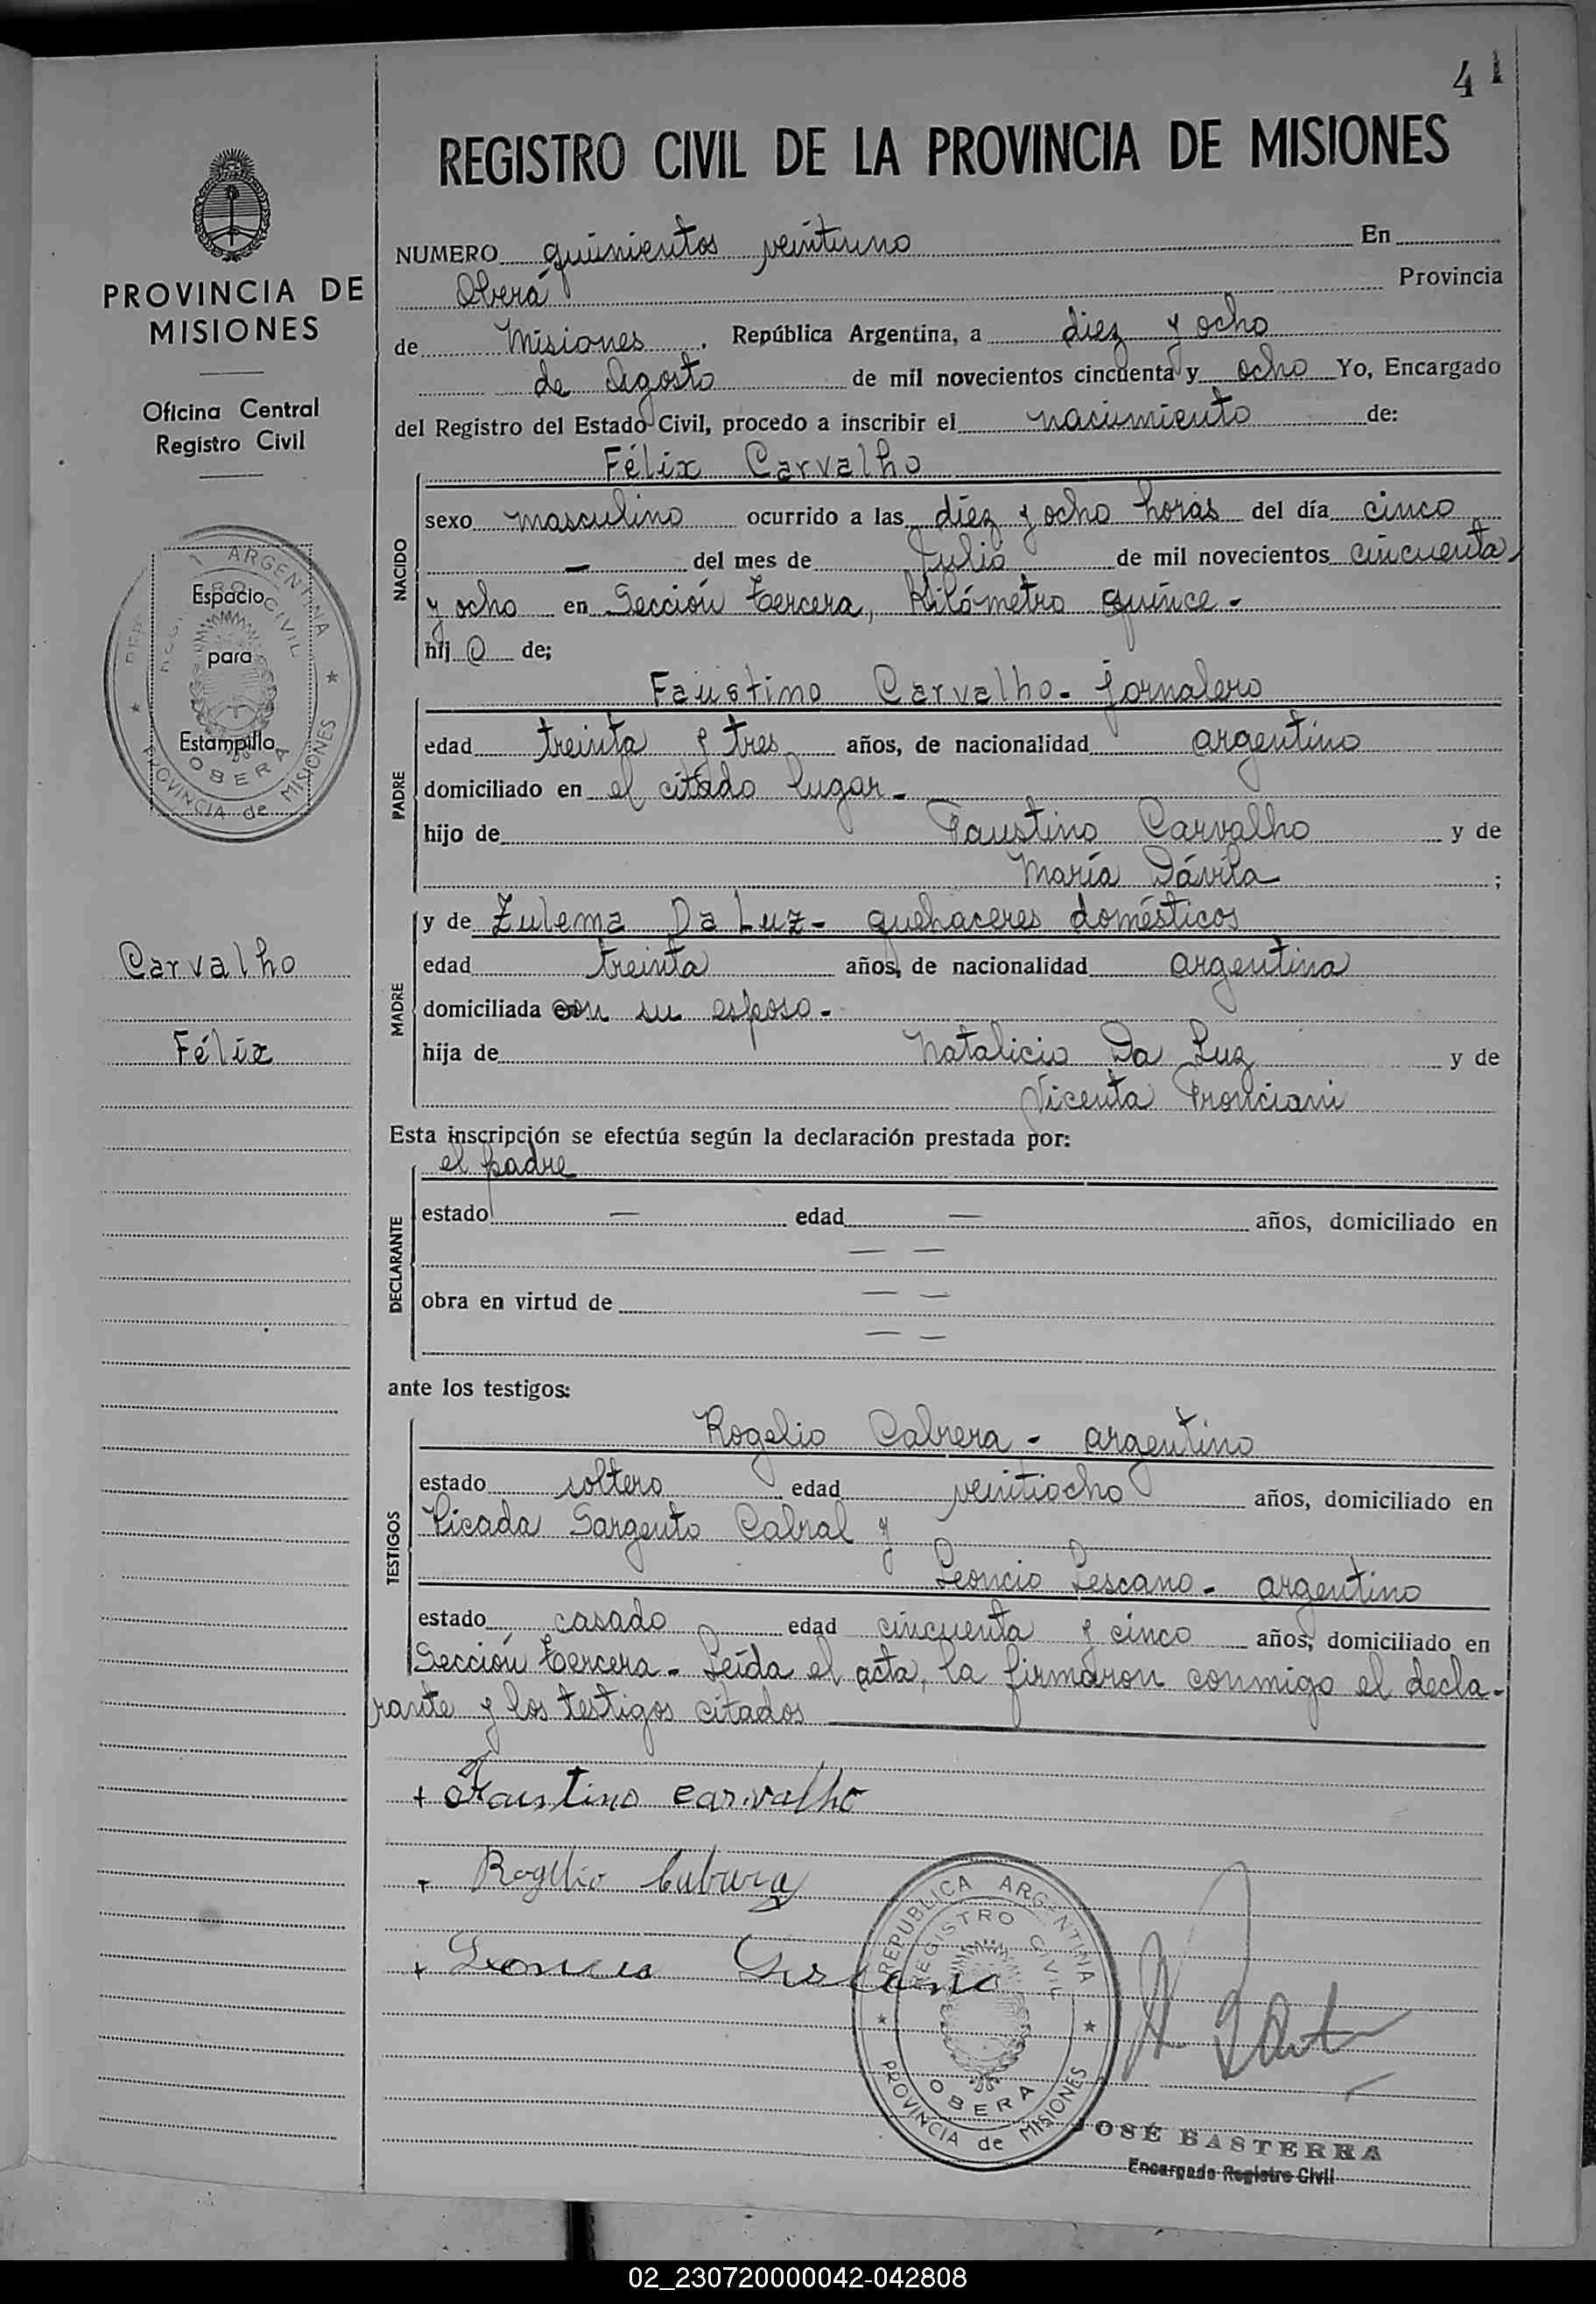 41
REGISTRO CIVIL DE LA PROVINCIA DE MISIONES
PROVINCIA DE
MISIONES
Oficina Central
Registro Civil
REPUBLICA ARGENTINA
REGISTRO CIVIL
OBERA
PROVINCIA de MISIONES
Espacio
para
Estampilla
Carvalho
Félix
NUMERO quinientos veintiuno En
Oberá Provincia
de Misiones. República Argentina, a diez y ocho
de Agosto de mil novecientos cincuenta y ocho Yo, Encargado
del Registro del Estado Civil, procedo a inscribir el nacimiento de:
Félix Carvalho
NACIDO
sexo masculino ocurrido a las diez y ocho horas del día cinco
— del mes de Julio de mil novecientos cincuenta
y ocho en Sección tercera, Kilómetro quince.-
hij o de;
Faustino Carvalho- jornalero
PADRE
edad treinta y tres años, de nacionalidad argentino
domiciliado en el citado lugar-
hijo de Faustino Carvalho y de
María Dávila ;
MADRE
y de Zulema Da Luz- quehaceres domésticos
edad treinta años, de nacionalidad argentina
domiciliada con su esposo.-
hija de Natalicio Da Luz y de
Vicenta Fronciani
Esta inscripción se efectúa según la declaración prestada por:
el padre
DECLARANTE
estado — edad — años, domiciliado en
— —
obra en virtud de — —
— —
ante los testigos:
Rogelio Cabrera- argentino
TESTIGOS
estado soltero edad veintiocho años, domiciliado en
Picada Sargento Cabral y
Leoncio Lescano- argentino
estado casado edad cincuenta y cinco años, domiciliado en
Sección tercera- Leída el acta, la firmaron conmigo el decla-
rante y los testigos citados
+ Faustino Carvalho
+ Rogelio Cabrera
+ Leoncio Lescano
REPUBLICA ARGENTINA
REGISTRO CIVIL
OBERA
PROVINCIA de MISIONES
JOSÉ BASTERRA
Encargado Registro Civil
02_230720000042-042808